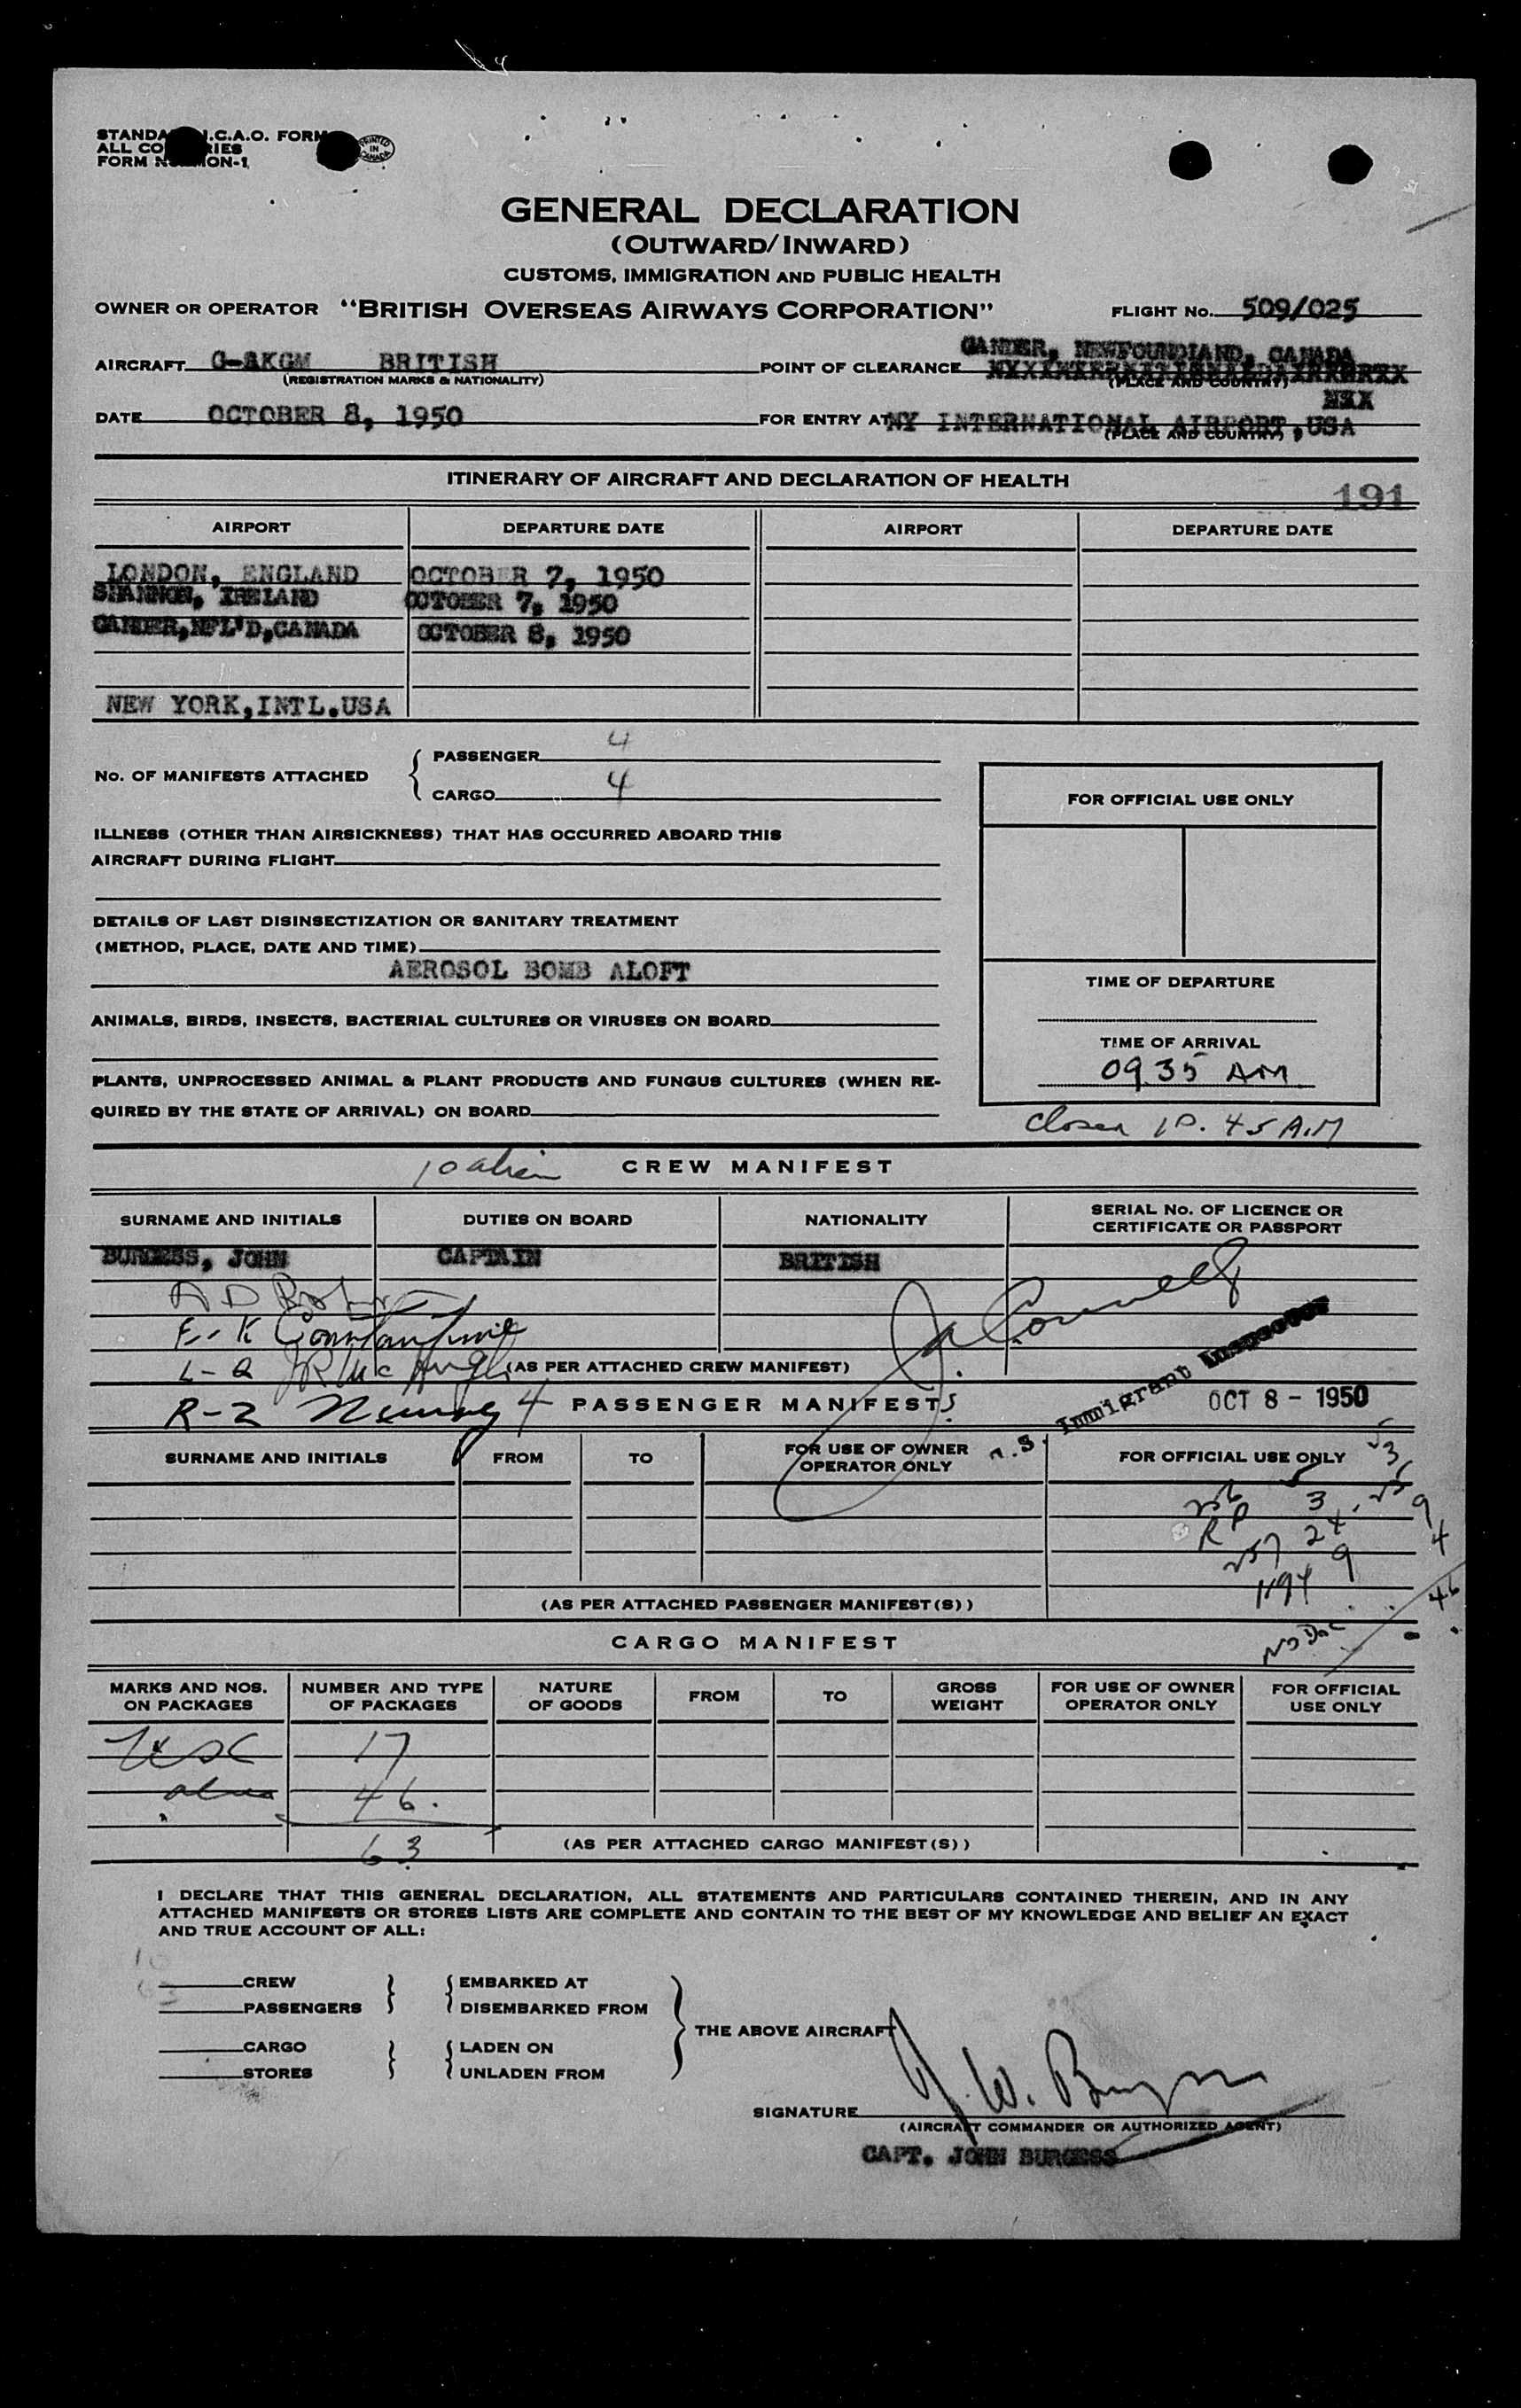 STANDA .C.A.O. FORM
ALL CO RIES
FORM N ON-1
PRINTED IN CANADA
GENERAL DECLARATION
(OUTWARD/INWARD)
CUSTOMS, IMMIGRATION AND PUBLIC HEALTH
OWNER OR OPERATOR "BRITISH OVERSEAS AIRWAYS CORPORATION" FLIGHT No. 509/025
AIRCRAFT G-AKGM BRITISH POINT OF CLEARANCE GANDER, NEWFOUNDLAND, CANADA
(REGISTRATION MARKS & NATIONALITY) (PLACE AND COUNTRY)
DATE OCTOBER 8, 1950 FOR ENTRY AT NY INTERNATIONAL AIRPORT, USA
(PLACE AND COUNTRY)
ITINERARY OF AIRCRAFT AND DECLARATION OF HEALTH
191
AIRPORT DEPARTURE DATE AIRPORT DEPARTURE DATE
LONDON, ENGLAND OCTOBER 7, 1950
SHANNON, IRELAND OCTOBER 7, 1950
GANDER,NFL'D,CANADA OCTOBER 8, 1950
NEW YORK,INTL.USA
No. OF MANIFESTS ATTACHED { PASSENGER 4
CARGO 4
FOR OFFICIAL USE ONLY
ILLNESS (OTHER THAN AIRSICKNESS) THAT HAS OCCURRED ABOARD THIS
AIRCRAFT DURING FLIGHT
DETAILS OF LAST DISINSECTIZATION OR SANITARY TREATMENT
(METHOD, PLACE, DATE AND TIME)
AEROSOL BOMB ALOFT
TIME OF DEPARTURE
ANIMALS, BIRDS, INSECTS, BACTERIAL CULTURES OR VIRUSES ON BOARD
TIME OF ARRIVAL
0935 AM
PLANTS, UNPROCESSED ANIMAL & PLANT PRODUCTS AND FUNGUS CULTURES (WHEN RE-
QUIRED BY THE STATE OF ARRIVAL) ON BOARD
Closed 10.45 A.M
10 alien CREW MANIFEST
SURNAME AND INITIALS DUTIES ON BOARD NATIONALITY SERIAL No. OF LICENCE OR
CERTIFICATE OR PASSPORT
BURGESS, JOHN CAPTAIN BRITISH
E-K Constantine
(AS PER ATTACHED CREW MANIFEST)
Immigrant Inspector
R-2 4 PASSENGER MANIFESTS OCT 8 - 1950
SURNAME AND INITIALS FROM TO FOR USE OF OWNER
OPERATOR ONLY FOR OFFICIAL USE ONLY
256 3
RP 24
257 9
1194
46
No Doc
(AS PER ATTACHED PASSENGER MANIFEST(S))
CARGO MANIFEST
MARKS AND NOS.
ON PACKAGES NUMBER AND TYPE
OF PACKAGES NATURE
OF GOODS FROM TO GROSS
WEIGHT FOR USE OF OWNER
OPERATOR ONLY FOR OFFICIAL
USE ONLY
USC 17
alien 46.
63 (AS PER ATTACHED CARGO MANIFEST(S))
I DECLARE THAT THIS GENERAL DECLARATION, ALL STATEMENTS AND PARTICULARS CONTAINED THEREIN, AND IN ANY
ATTACHED MANIFESTS OR STORES LISTS ARE COMPLETE AND CONTAIN TO THE BEST OF MY KNOWLEDGE AND BELIEF AN EXACT
AND TRUE ACCOUNT OF ALL:
10 CREW EMBARKED AT
63 PASSENGERS DISEMBARKED FROM
THE ABOVE AIRCRAFT
CARGO LADEN ON
STORES UNLADEN FROM
SIGNATURE J. W. Burgess
(AIRCRAFT COMMANDER OR AUTHORIZED AGENT)
CAPT. JOHN BURGESS